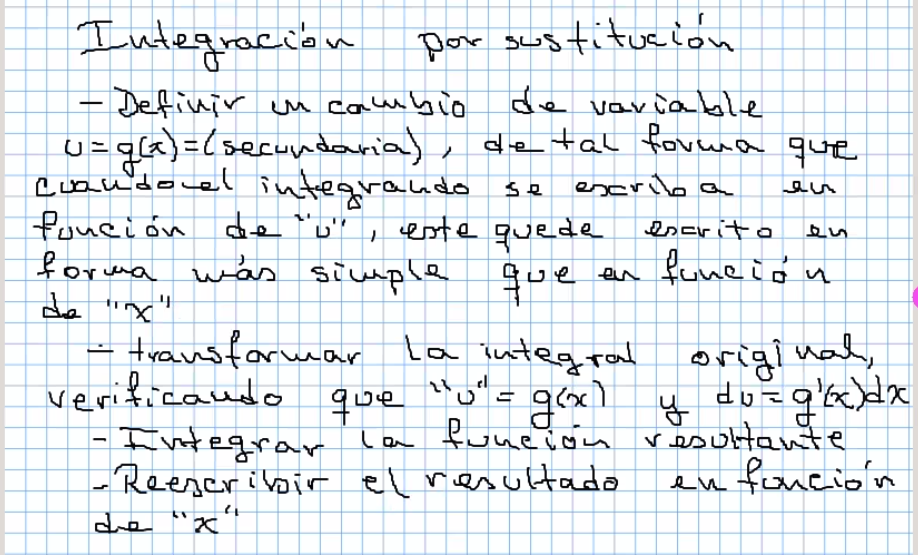 Integración por sustitución
- Definir un cambio de variable
u = g(x) = (secundaria), de tal forma que
cuando el integrando se escriba en
función de "u", este quede escrito en
forma más simple que en función
de "x"
- transformar la integral original,
verificando que "u" = g(x) y du = g'(x)dx
- Integrar la función resultante
- Reescribir el resultado en función
de "x"